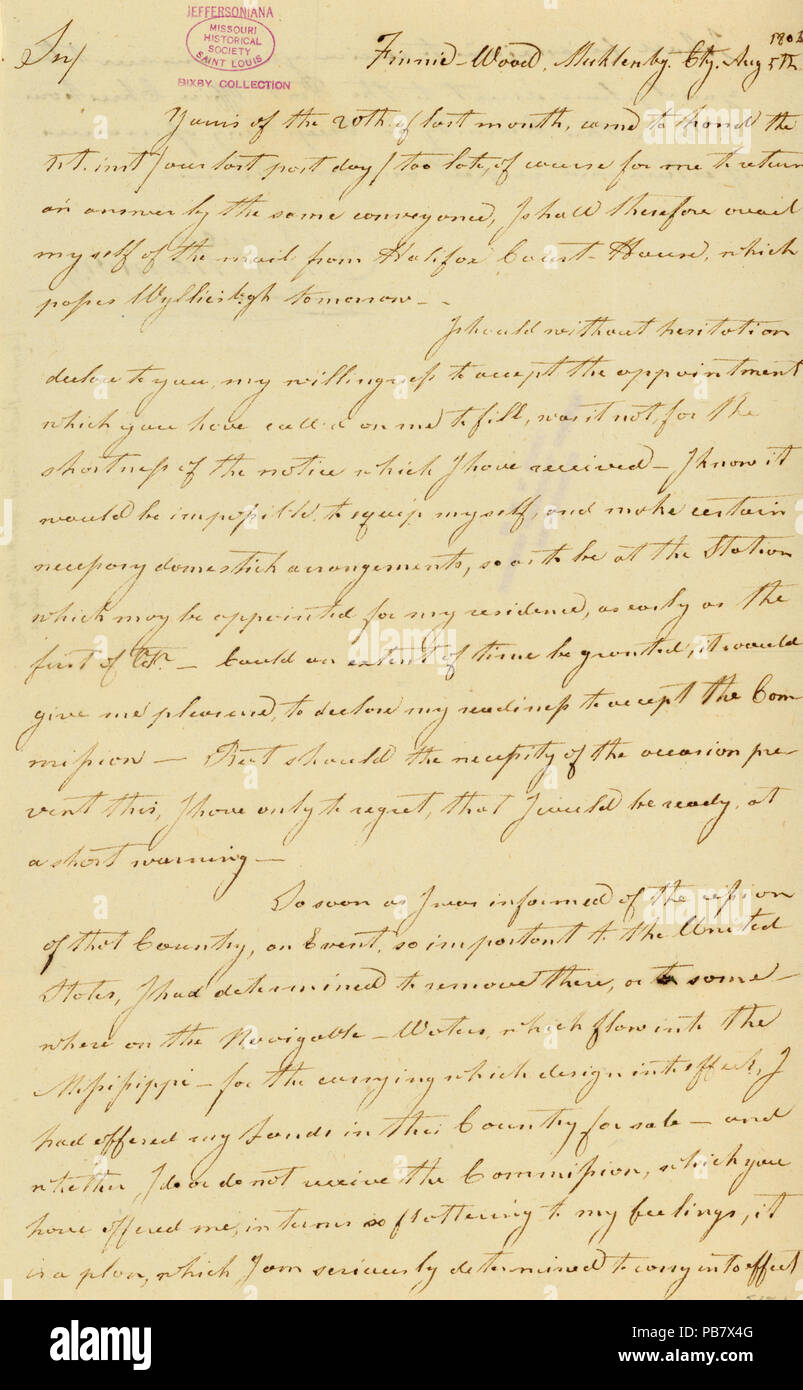 JEFFERSONIANA
MISSOURI
HISTORICAL
SOCIETY
SAINT LOUIS
BIXBY COLLECTION
Sir/
Finnie-Wood, Mecklenbg. Cty. Aug 5th
Yours of the 20th of last month, came to hand the
1st. inst / our last post day / too late, of course for me to return
an answer by the same conveyance, I shall therefore avail
myself of the mail from Halifax Court-House, which
passes Wylliesbgh tomorrow - -
I should without hesitation
declare to you, my willingness to accept the appointment
which you have call'd on me to fill, was it not, for the
shortness of the notice which I have received - I know it
would be impossible, to equip myself, and make certain
necessary domestick arrangements, so as to be at the Station
which may be appointed for my residence, as early as the
first of Octr. - Could an extent of time be granted, it would
give me pleasure, to declare my readiness to accept the Com-
mission - But should the necessity of the occasion pre-
vent this, I have only to regret, that I could be ready, at
a short warning -
So soon as I was informed of the cession
of that Country, an Event, so important to the United
States, I had determined to remove there, or to some-
where on the Navigable-Waters, which flow into the
Missisippi - for the carrying which design into effect, I
had offered my Lands in this Country for sale - and
whether I do or do not receive the Commission, which you
have offered me, in terms so flattering to my feelings, it
is a plan, which I am seriously determined to carry into effect
alamy
alamy
alamy
alamy
Image ID: PB7X4G
www.alamy.com